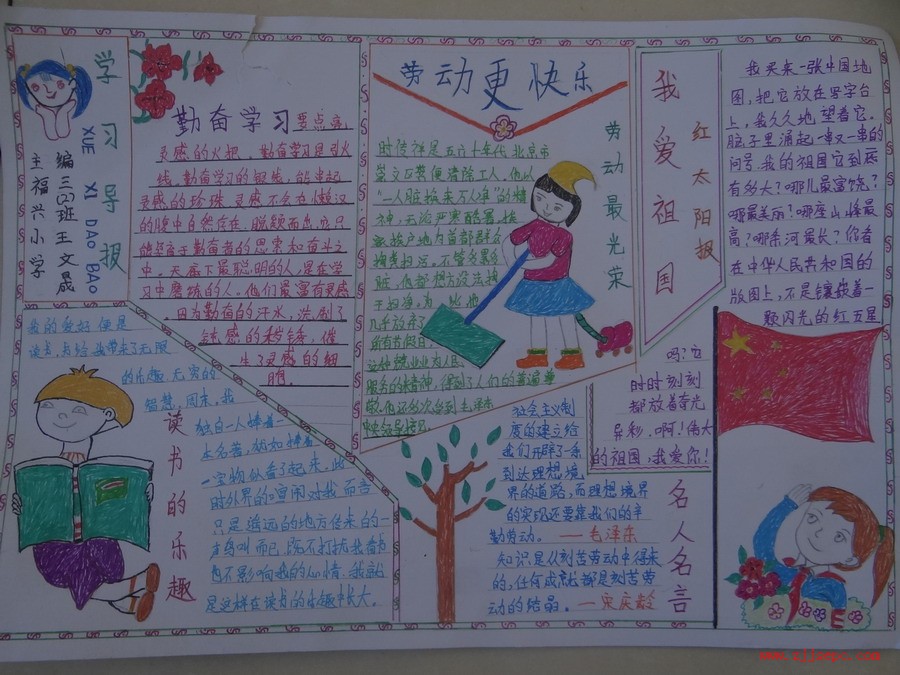 学习导报
XUE XI DAO BAO
编三(2)班王文晟
主福兴小学
勤奋学习要点亮
灵感的火把。勤奋学习是引火
线。勤奋学习的银线,能串起
灵感的珍珠。灵感不会在懒汉
的腹中自然存在,脱颖而出,它只
能忠于勤奋者的思索和奋斗之
中。天底下最聪明的人,是在学
习中磨炼的人。他们最富有灵感
因为勤奋的汗水,洗刷了
钝感的秽锈,催
生了灵感的翅
膀。
劳动更快乐
劳动最光荣
时传祥是五六十年代北京市
崇文区粪便清除工人,他以
“一人脏换来万人净”的精
神,无论严寒酷暑,挨
家挨户地为首都群众
掏粪扫污。不管多累多
脏,他都想方设法
几乎放弃了
所有节假日,
这种兢兢业业为人民
服务的精神,得到了人们的普遍尊
敬。他还多次受到毛泽东
中央领导接见
我爱祖国
红太阳报
我买来一张中国地
图,把它放在写字台
上,我久久地望着它。
脑子里涌起一串又一串的
问号。我的祖国它到底
有多大?哪儿最富饶?
哪最美丽?哪座山峰最
高?哪条河最长?你看
在中华人民共和国的
版图上,不是镶嵌着一
颗闪光的红五星
吗?它
时时刻刻
都放着奇光
异彩。啊!伟大
的祖国,我爱你!
读书的乐趣
我的爱好便是
读书,书给我带来了无限
的乐趣,无穷的
智慧。周末,我
独自一人捧着一
本名著,就如捧着
一宝物似看了起来。此
时外界的喧闹对我而言
只是遥远的地方传来的一
声鸟叫而已,既不打扰我看书
也不影响我的心情。我就
是这样在读书的乐趣中长大。
名人名言
社会主义制
度的建立给
我们开辟了一条
到达理想境
界的道路,而理想境界
的实现还要靠我们的辛
勤劳动。——毛泽东
知识是从刻苦劳动中得来
的,任何成就都是刻苦劳
动的结晶。——宋庆龄